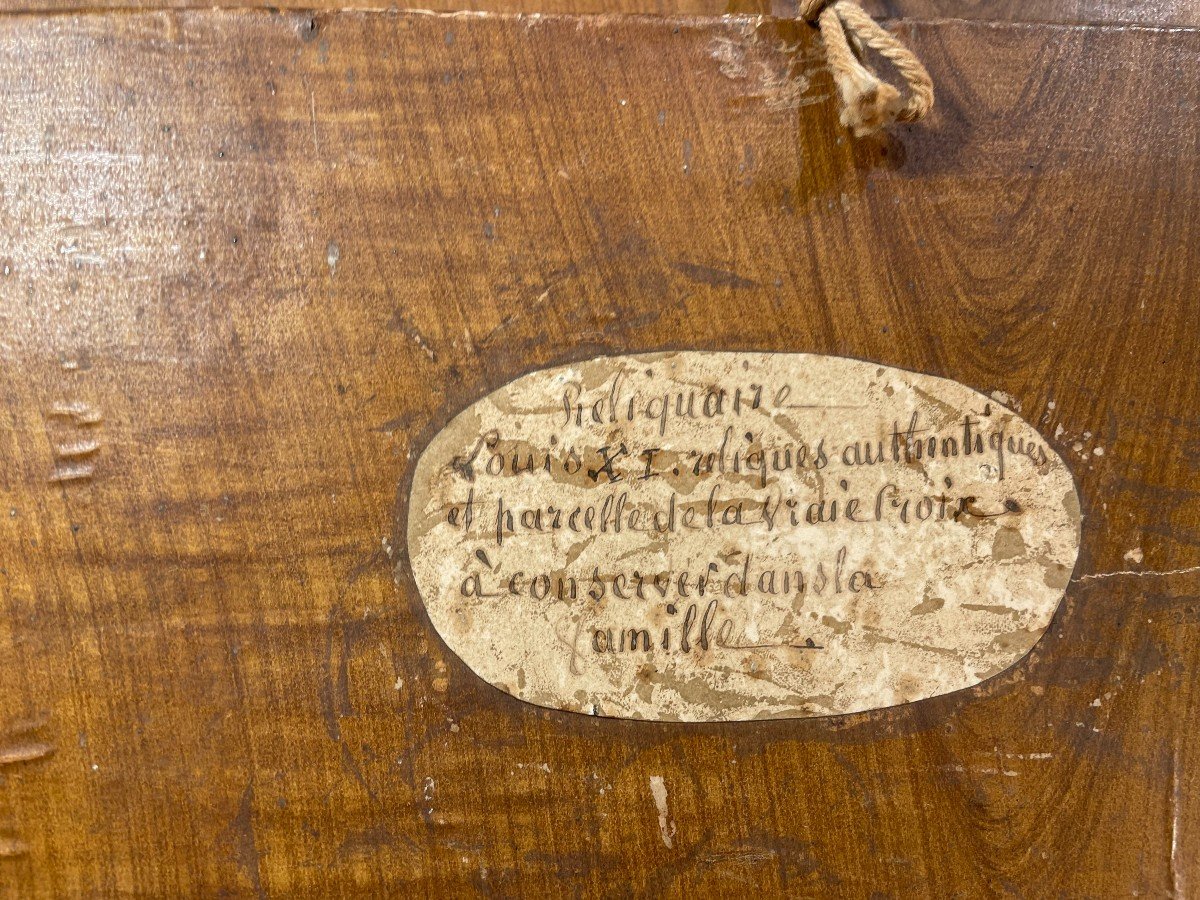 Reliquaire
Louis XI. reliques authentiques
et parcelle de la Vraie Croix
à conserver dans la
famille